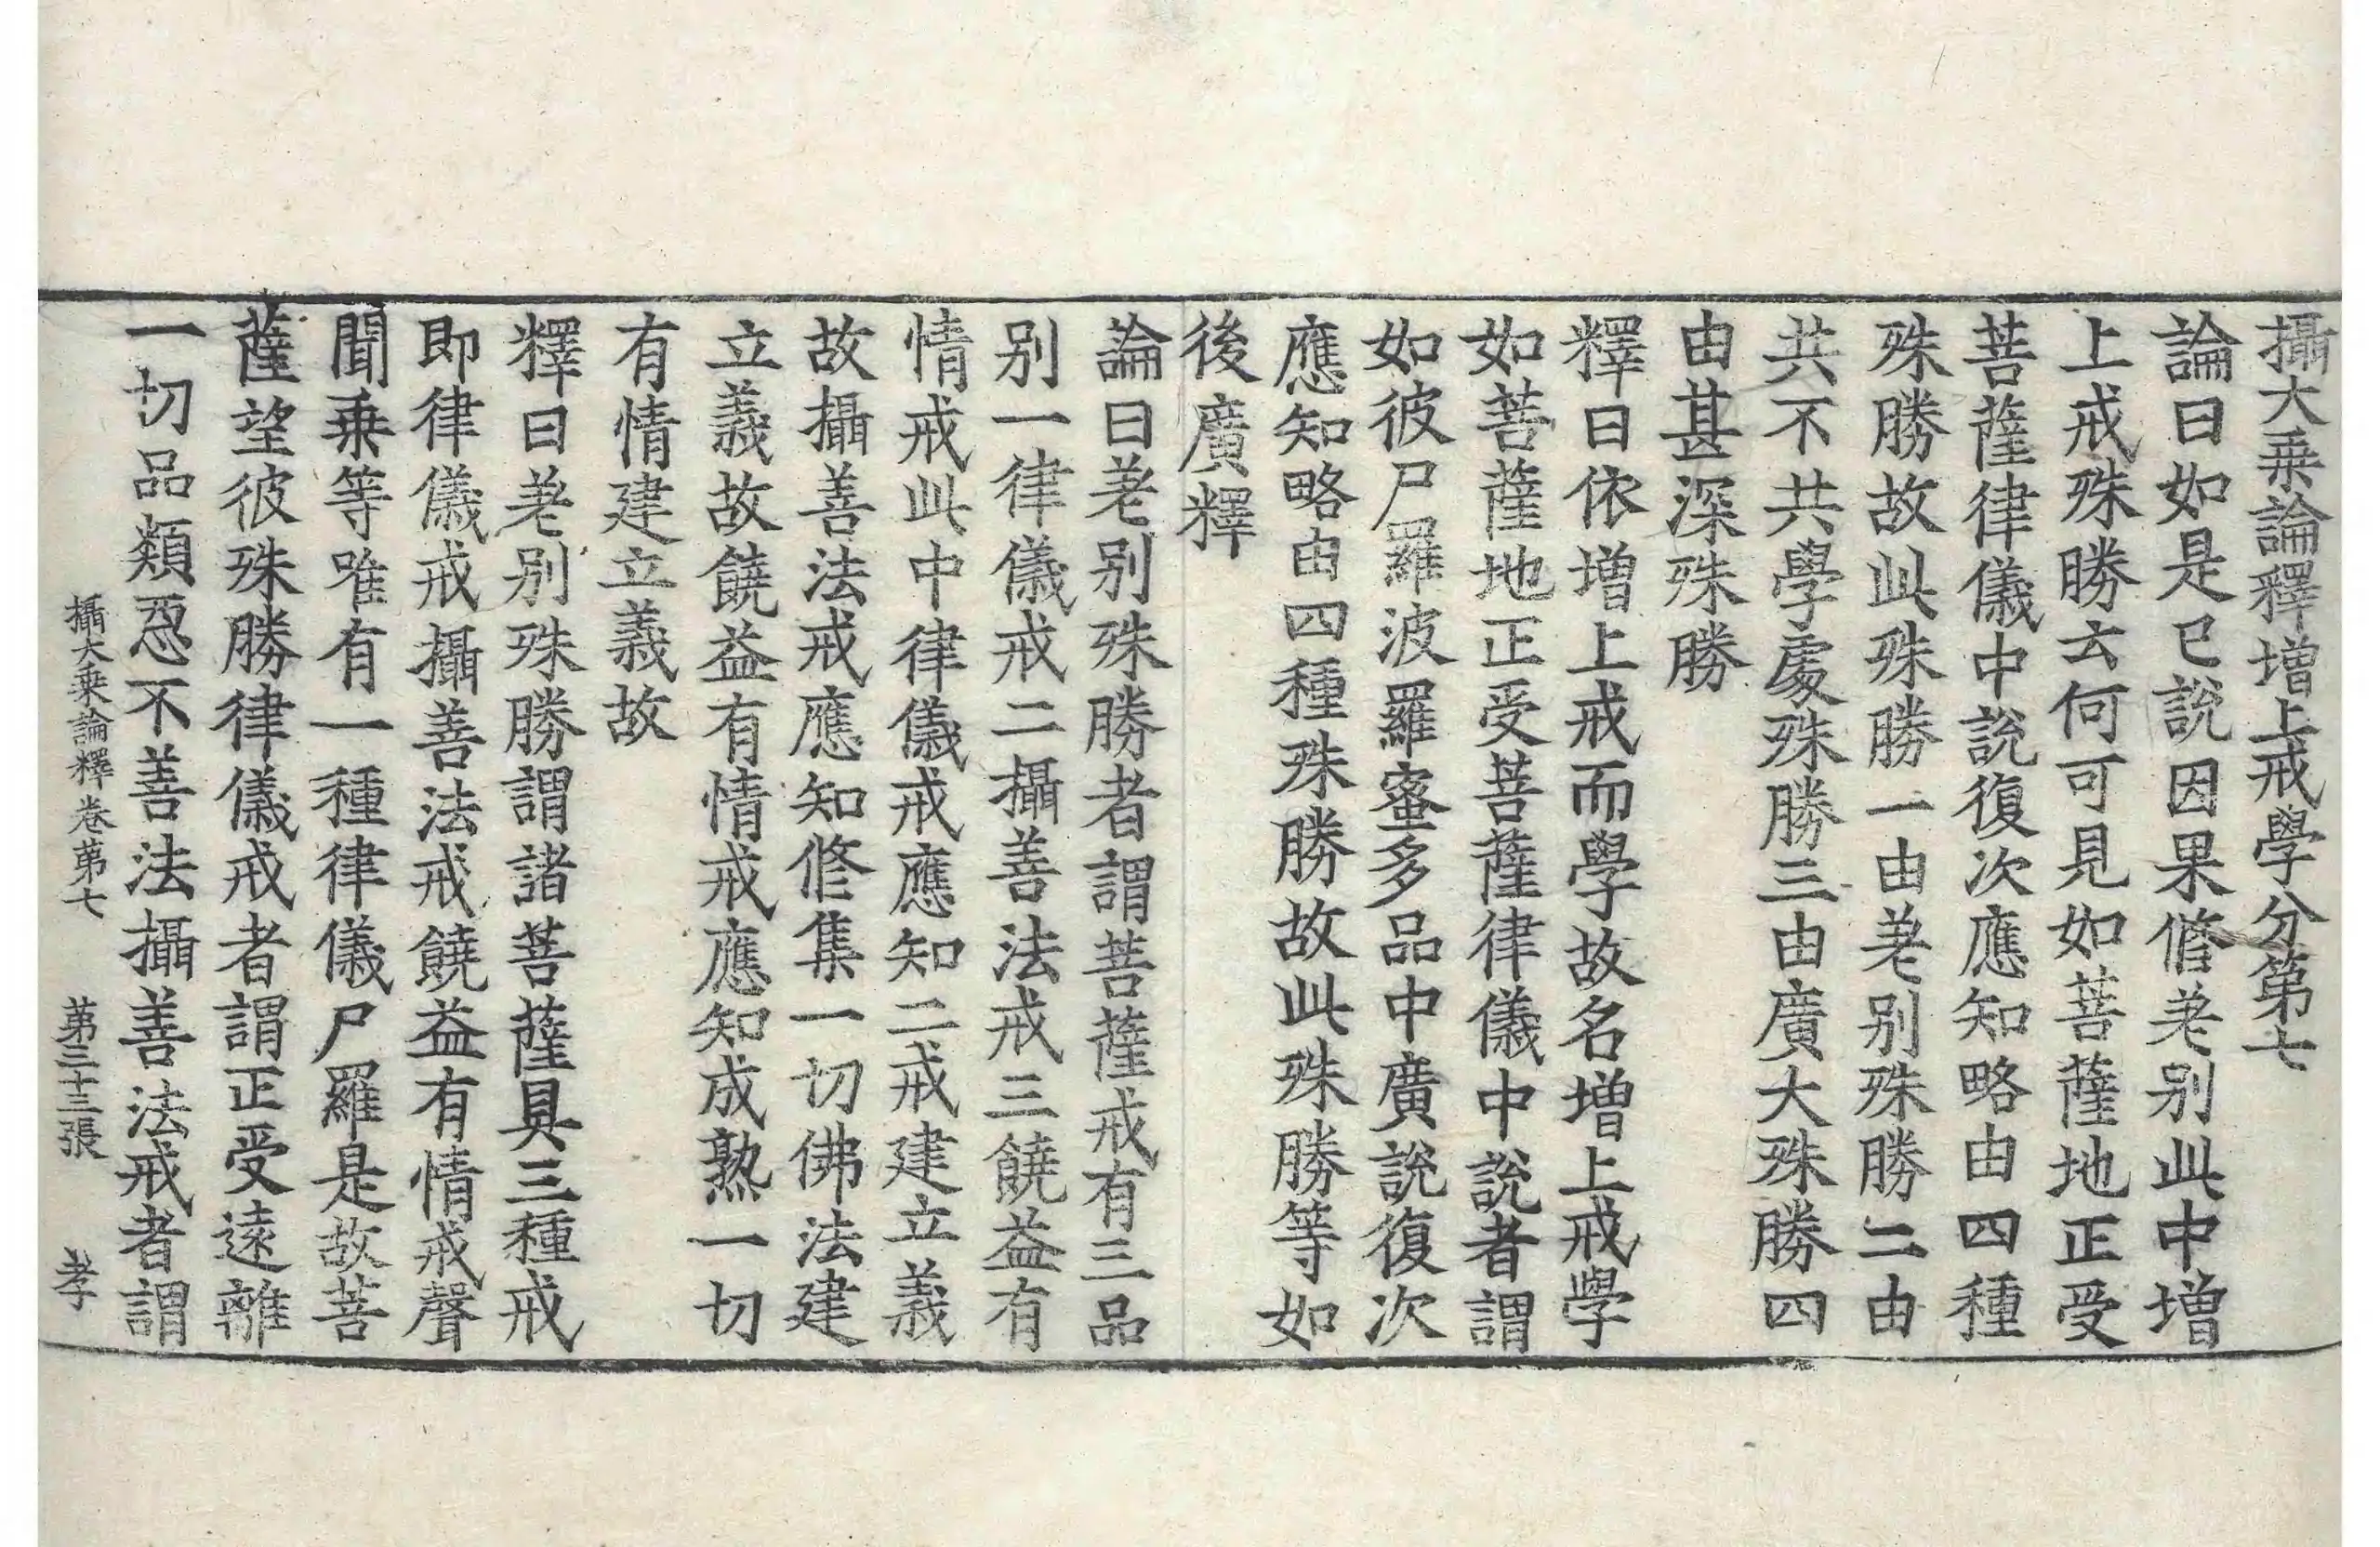 攝大乗論釋増上戒學分第七
論曰如是已說因果修差别此中増
上戒殊勝云何可見如菩薩地正受
菩薩律儀中說復次應知略由四種
殊勝故此殊勝一由差别殊勝二由
共不共學處殊勝三由廣大殊勝四
由甚深殊勝
釋曰依増上戒而學故名増上戒學
如菩薩地正受菩薩律儀中說者謂
如彼尸羅波羅蜜多品中廣說復次
應知略由四種殊勝故此殊勝等如
後廣釋
論曰差别殊勝者謂菩薩戒有三品
别一律儀戒二攝善法戒三饒益有
情戒此中律儀戒應知二戒建立義
故攝善法戒應知修集一切佛法建
立義故饒益有情戒應知成熟一切
有情建立義故
釋曰差别殊勝謂諸菩薩具三種戒
即律儀戒攝善法戒饒益有情戒聲
聞乗等唯有一種律儀尸羅是故菩
薩望彼殊勝律儀戒者謂正受遠離
一切品類惡不善法攝善法戒者謂
攝大乗論釋卷第七 第三十三張 孝